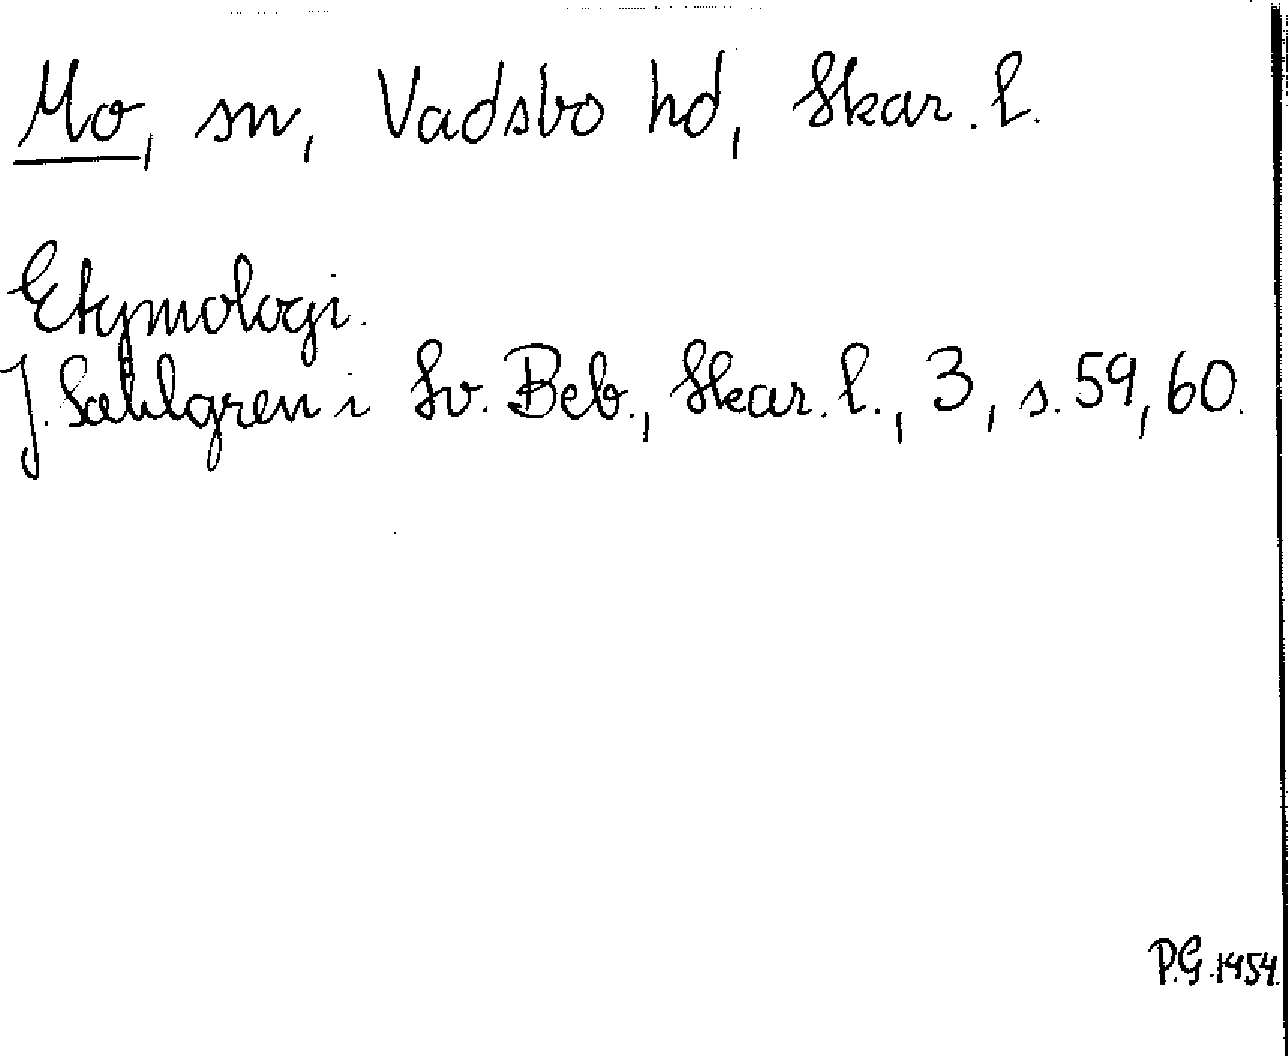 Mo, sn, Vadsbo hd, Skar. l.
Etymologi.
J. Sahlgren i Sv. Beb., Skar. l., 3, s. 59, 60.
P.G. 1954.